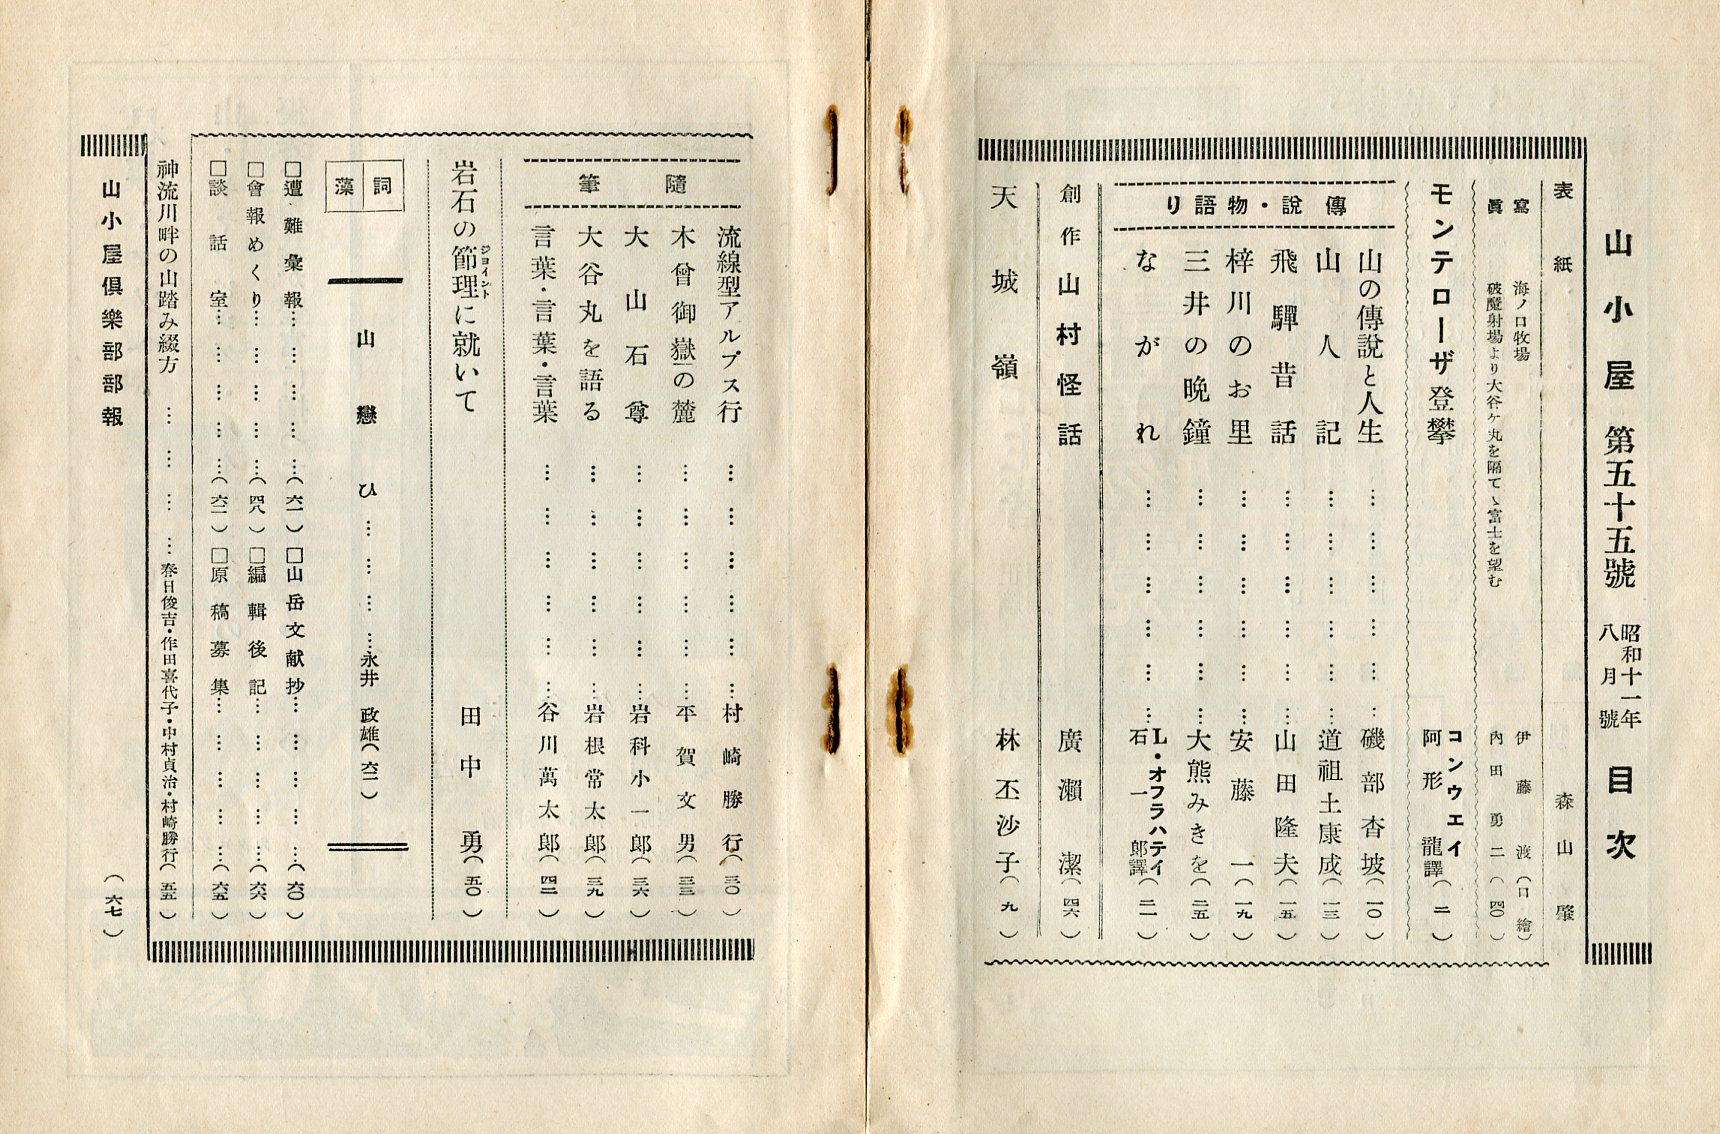 山小屋 第五十五號 昭和十一年八月號 目次
表紙 森山肇
寫眞
海ノ口牧場 伊藤渡(口繪)
破魔射場より大谷ケ丸を隔てゝ富士を望む 內田勇二(四〇)
モンテローザ登攀 コンウェイ 阿形龍譯(二)
傳說・物語り
山の傳說と人生………………磯部杏坡(一〇)
山人記………………道祖土康成(一三)
飛驒昔話………………山田隆夫(一五)
梓川のお里………………安藤一(一九)
三井の晩鐘………………大熊みきを(二五)
ながれ………………L・オフラハテイ 石一郎譯(二一)
創作 山村怪話 廣瀨潔(四六)
天城嶺 林丕沙子(九)
隨筆
流線型アルプス行………………村崎勝行(三〇)
木曾御嶽の麓………………平賀文男(三三)
大山石尊………………岩科小一郎(三六)
大谷丸を語る………………岩根常太郎(三九)
言葉・言葉・言葉………………谷川萬太郎(四二)
岩石の節理に就いて 田中勇(五〇)
ジョイント
詞藻
山戀ひ…………永井政雄(六二)
□遭難彙報…………(六一)□山岳文献抄…………(六〇)
□會報めくり…………(四八)□編輯後記…………(六六)
□談話室…………(六三)□原稿募集…………(六五)
神流川畔の山踏み綴方…………春日俊吉・作田喜代子・中村貞治・村崎勝行(五五)
山小屋俱樂部部報 (六七)